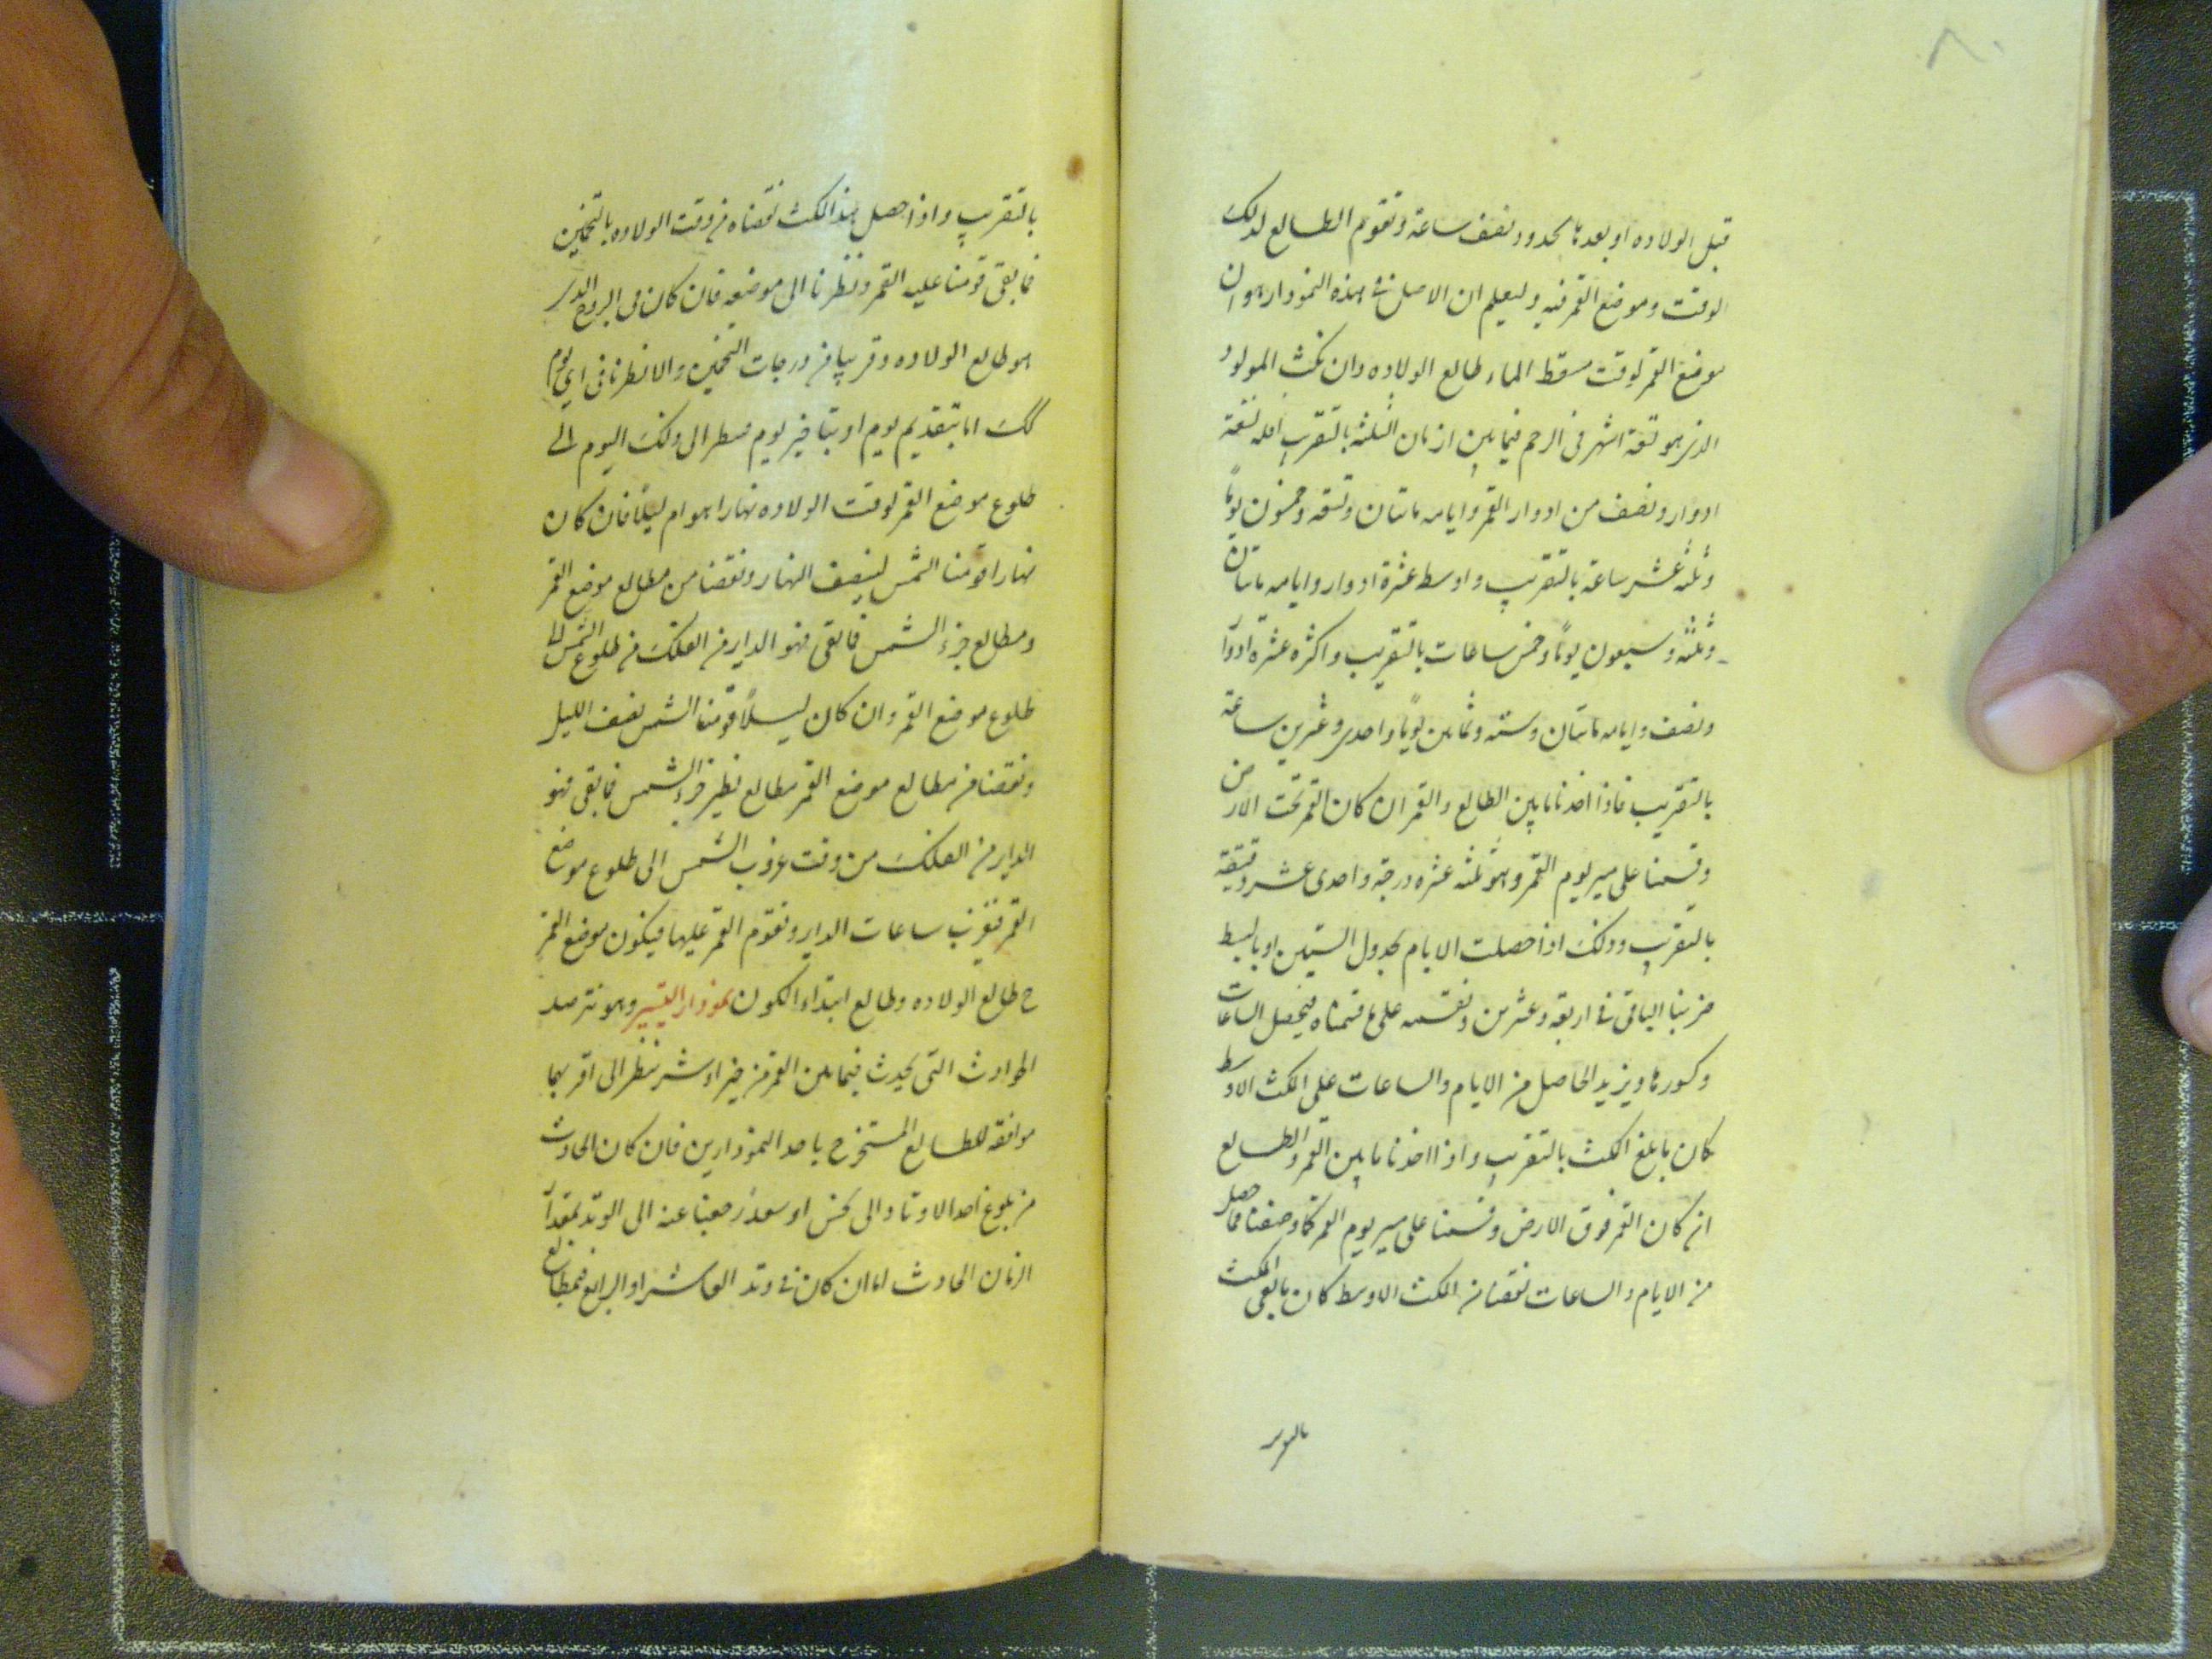 ٨٠
قبل الولاده او بعدها بحدود نصف ساعة ونقوم الطالع لذلك
الوقت وموضع القمر فيه وليعلم ان الاصل فى هذه النمودار هو ان
موضع القمر لوقت مسقط الماء طالع الولاده وان مكث المولود
الذى هو تسعة اشهر فى الرحم فيما بين ازمان الثلثه بالتقريب اقله تسعة
ادوار ونصف من ادوار القمر وايامه مائتان وتسعه وخمسون يومًا
وثلثه عشر ساعة بالتقريب واوسط عشرة ادوار وايامه مائتان
وثلثه وسبعون يومًا وخمس ساعات بالتقريب واكثره عشره ادوار
ونصف وايامه مائتان وسته وثمانين يومًا واحدى وعشرين ساعة
بالتقريب فاذا اخذنا ما بين الطالع والقمر ان كان القمر تحت الارض
وقسمنا على مسير يوم القمر وهو ثلثه عشره درجة واحدى عشر دقيقة
بالتقريب وذلك اذا حصلت الايام بجدول الستين او بالبسط
ضربنا الباقى فى اربعة وعشرين ونقسمه على ما قسمناه فيحصل الساعات
وكسورها ويزيد الحاصل من الايام والساعات على المكث الاوسط
كان ما بلغ المكث بالتقريب واذا اخذنا ما بين القمر والطالع
ان كان القمر فوق الارض وقسمنا على مسير يوم القمر كما وصفنا فما حصل
من الايام والساعات نقصنا من المكث الاوسط كان ما بقى المكث
بالتقريب
بالتقريب واذا حصل هذا المكث نقصناه من وقت الولاده بالتخمين
فما بقى قومنا عليه القمر ونظرنا الى موضعه فان كان فى البروج الذى
هو طالع الولاده وقريبا من درجات التخمين والا نظرنا فى اى يوم
كك اما بتقديم يوم او بتاخير يوم فينظر الى ذلك اليوم الى
طلوع موضع القمر لوقت الولاده نهارا هو ام ليلًا فان كان
نهارا قومنا الشمس لنصف النهار ونقصنا من مطالع موضع القمر
ومطالع جزء الشمس فما بقى فهو الداير من الفلك من طلوع الشمس الى
طلوع موضع القمر وان كان ليلًا قومنا الشمس نصف الليل
ونقصنا من مطالع موضع القمر مطالع نظير جزء الشمس فما بقى فهو
الداير من الفلك من وقت غروب الشمس الى طلوع موضع
القمر فنعرف ساعات الداير ونقوم القمر عليها فيكون موضع القمر
ح طالع الولاده وطالع ابتداء الكون نمودار التسيير وهو نترصد
الحوادث التى يحدث فيما بين القمر من خير او شر ننظر الى اقربها
موافقه للطالع المستخرج باحد النمودارين فان كان الحادث
من بلوغ احد الاوتاد الى نحس او سعد رجعنا عنه الى الوتد بمقدار
الزمان الحادث اما ان كان فى وتد العاشر او الرابع فبمطالع